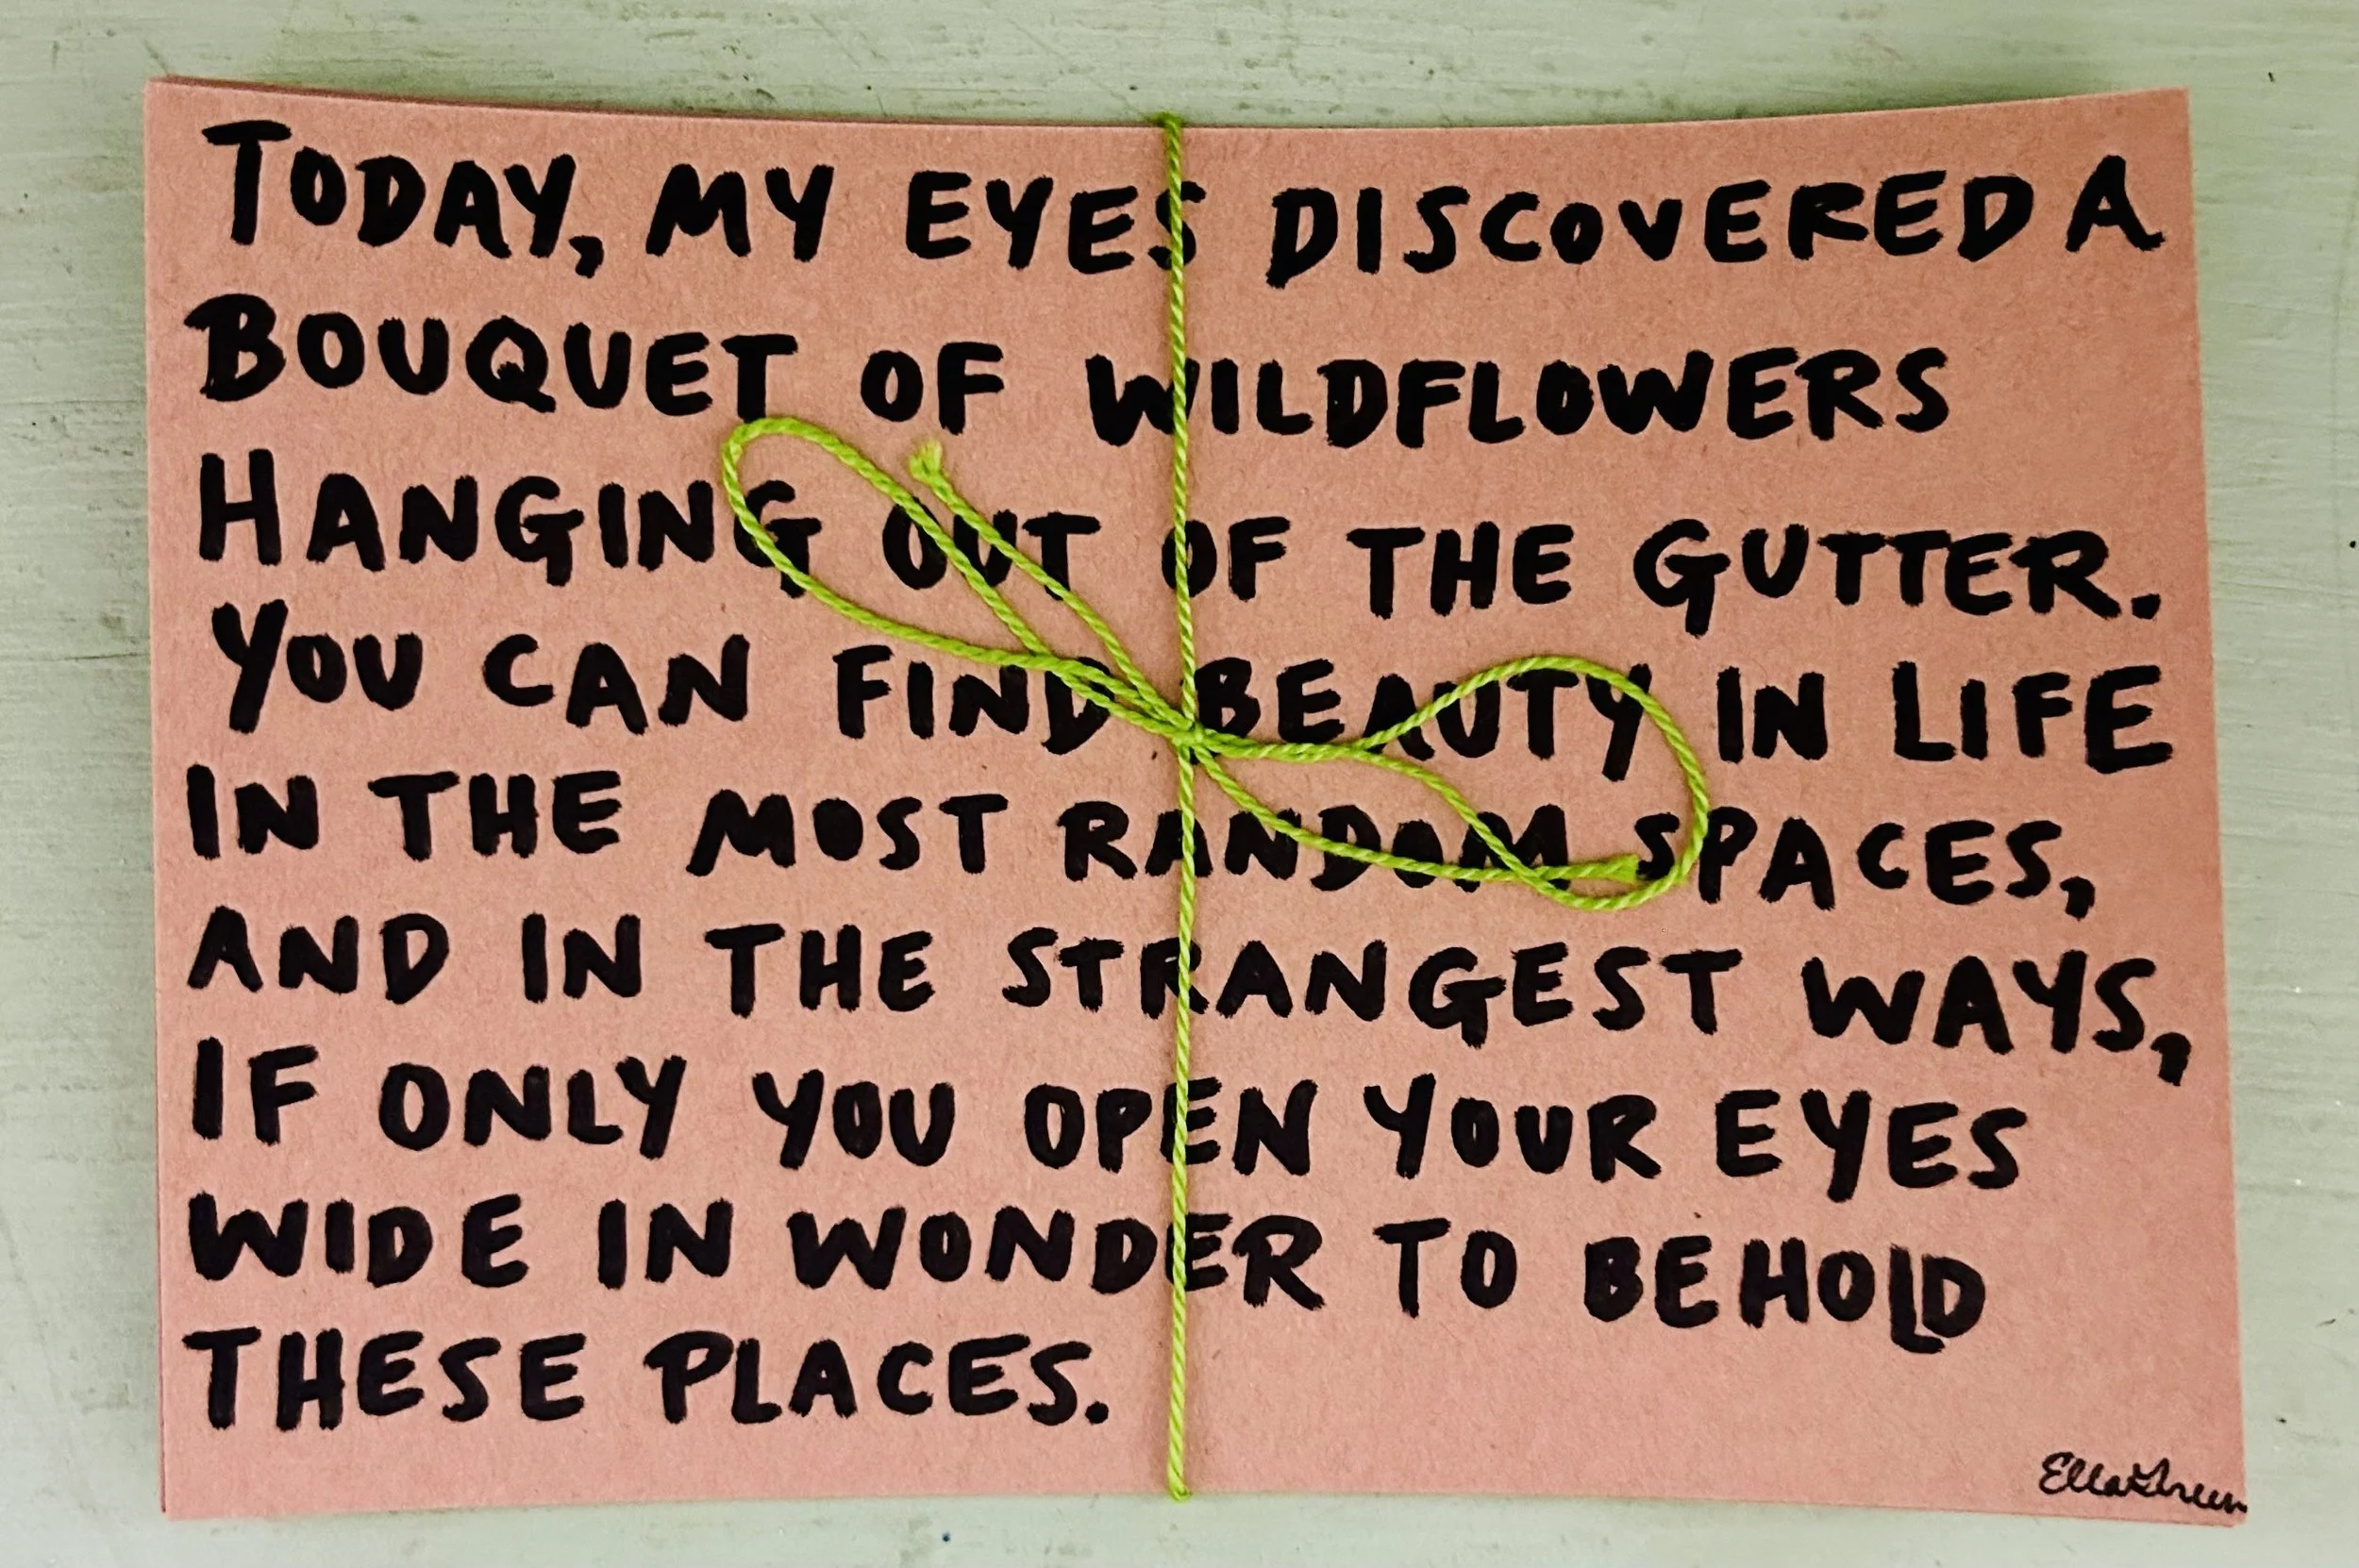 TODAY, MY EYES DISCOVERED A
BOUQUET OF WILDFLOWERS
HANGING OUT OF THE GUTTER.
YOU CAN FIND BEAUTY IN LIFE
IN THE MOST RANDOM SPACES,
AND IN THE STRANGEST WAYS,
IF ONLY YOU OPEN YOUR EYES
WIDE IN WONDER TO BEHOLD
THESE PLACES.
Ella